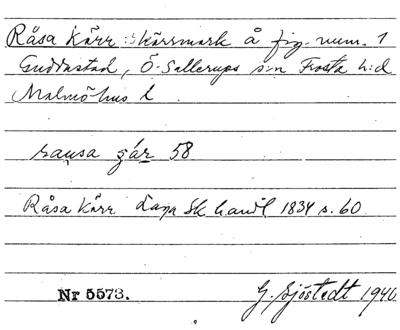 Råsa Kärr :: kärrmark å fig. num. 1
Guddastad, Ö. Sallerups s:n Frosta h:d
Malmöhus l.
rausa s̨ár 58
Råsa Kärr Lant Sk handl 1834 s. 60
Nr 5573.
G. Sjöstedt 1946.